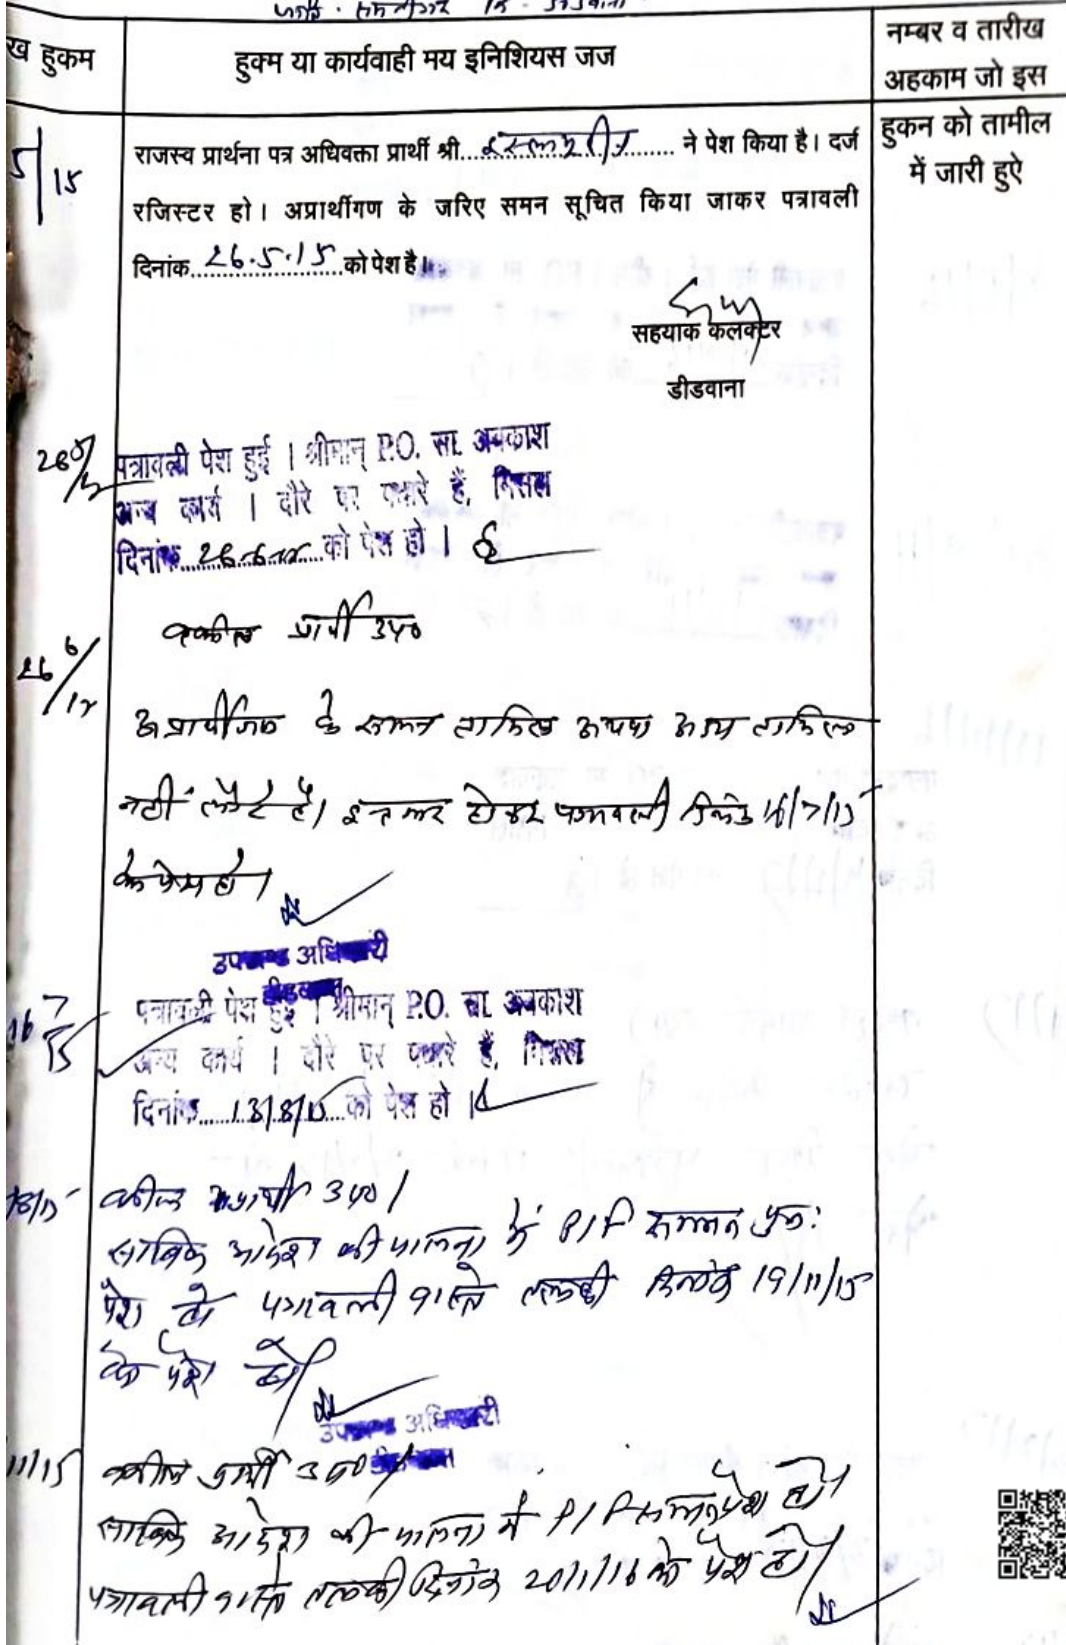 ख हुकम
हुक्म या कार्यवाही मय इनिशियस जज
नम्बर व तारीख
अहकाम जो इस
हुकन को तामील
में जारी हुऐ
5/15
राजस्व प्रार्थना पत्र अधिवक्ता प्रार्थी श्री.................... ने पेश किया है। दर्ज
रजिस्टर हो। अप्रार्थीगण के जरिए समन सूचित किया जाकर पत्रावली
दिनांक..26.5.15..को पेश है।
सहयाक कलक्टर
डीडवाना
पत्रावली पेश हुई । श्रीमान् P.O. सा. अवकाश
अन्य कार्य । दौरे पर पधारे हैं, मिसल
दिनांक.........को पेश हो ।
वकील प्रार्थी उप०
26/6/15
के समन तामिल अदम तामिल
नहीं लौटे है। इन्तजार होकर पत्रावली दिनांक 16/7/15
को पेश हो।
उपखण्ड अधिकारी
डीडवाना
16/7/15
पत्रावली पेश हुई । श्रीमान् P.O. सा. अवकाश
अन्य कार्य । दौरे पर पधारे हैं, मिसल
दिनांक....13/8/15...को पेश हो ।
8/15
वकील प्रार्थी उप०।
साबिक आदेश की पालना में P/F सम्मन पुनः
पेश हो पत्रावली वास्ते तलबी दिनांक 19/11/15
को पेश हो।
उपखण्ड अधिकारी
डीडवाना
11/15
वकील प्रार्थी उप०
साबिक आदेश की पालना में P/F सम्मन पेश हो।
पत्रावली वास्ते तलबी दिनांक 20/1/16 को पेश हो।